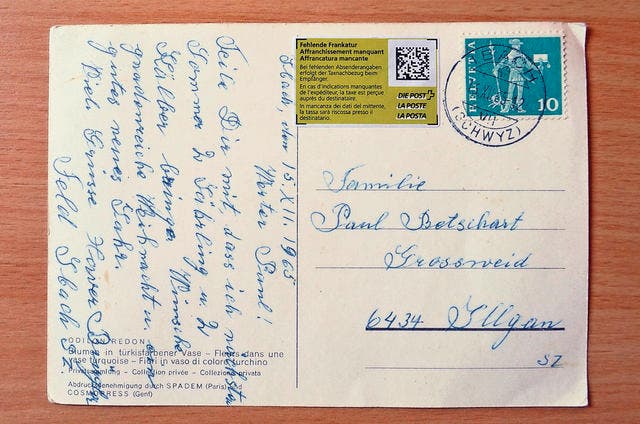 Ibach, den 15. XII. 1965
Werter Paul!
Teile Dir mit, dass ich nächsten
Sommer 2 Jährling u. 2
Kälber Wünsche
gnadenreiche Weihnacht u. ein
gutes neues Jahr.
Viele Grüsse
Feld Ibach SZ
ODILON REDON
Blumen in türkisfarbener Vase – Fleurs dans une
vase turquoise – Fiori in vaso di colore turchino
Privatsammlung – Collection privée – Collezione privata
Abdruckgenehmigung durch SPADEM (Paris) und
COSMOPRESS (Genf)
Fehlende Frankatur
Affranchissement manquant
Affrancatura mancante
Bei fehlenden Absenderangaben
erfolgt der Taxnachbezug beim
Empfänger.
En cas d'indications manquantes
de l'expéditeur, la taxe est perçue
auprès du destinataire.
In mancanza dei dati del mittente,
la tassa sarà riscossa presso il
destinatario.
DIE POST
LA POSTE
LA POSTA
HELVETIA
10
(SCHWYZ)
Familie
Paul Betschart
Grossweid
6434 Illgau
SZ